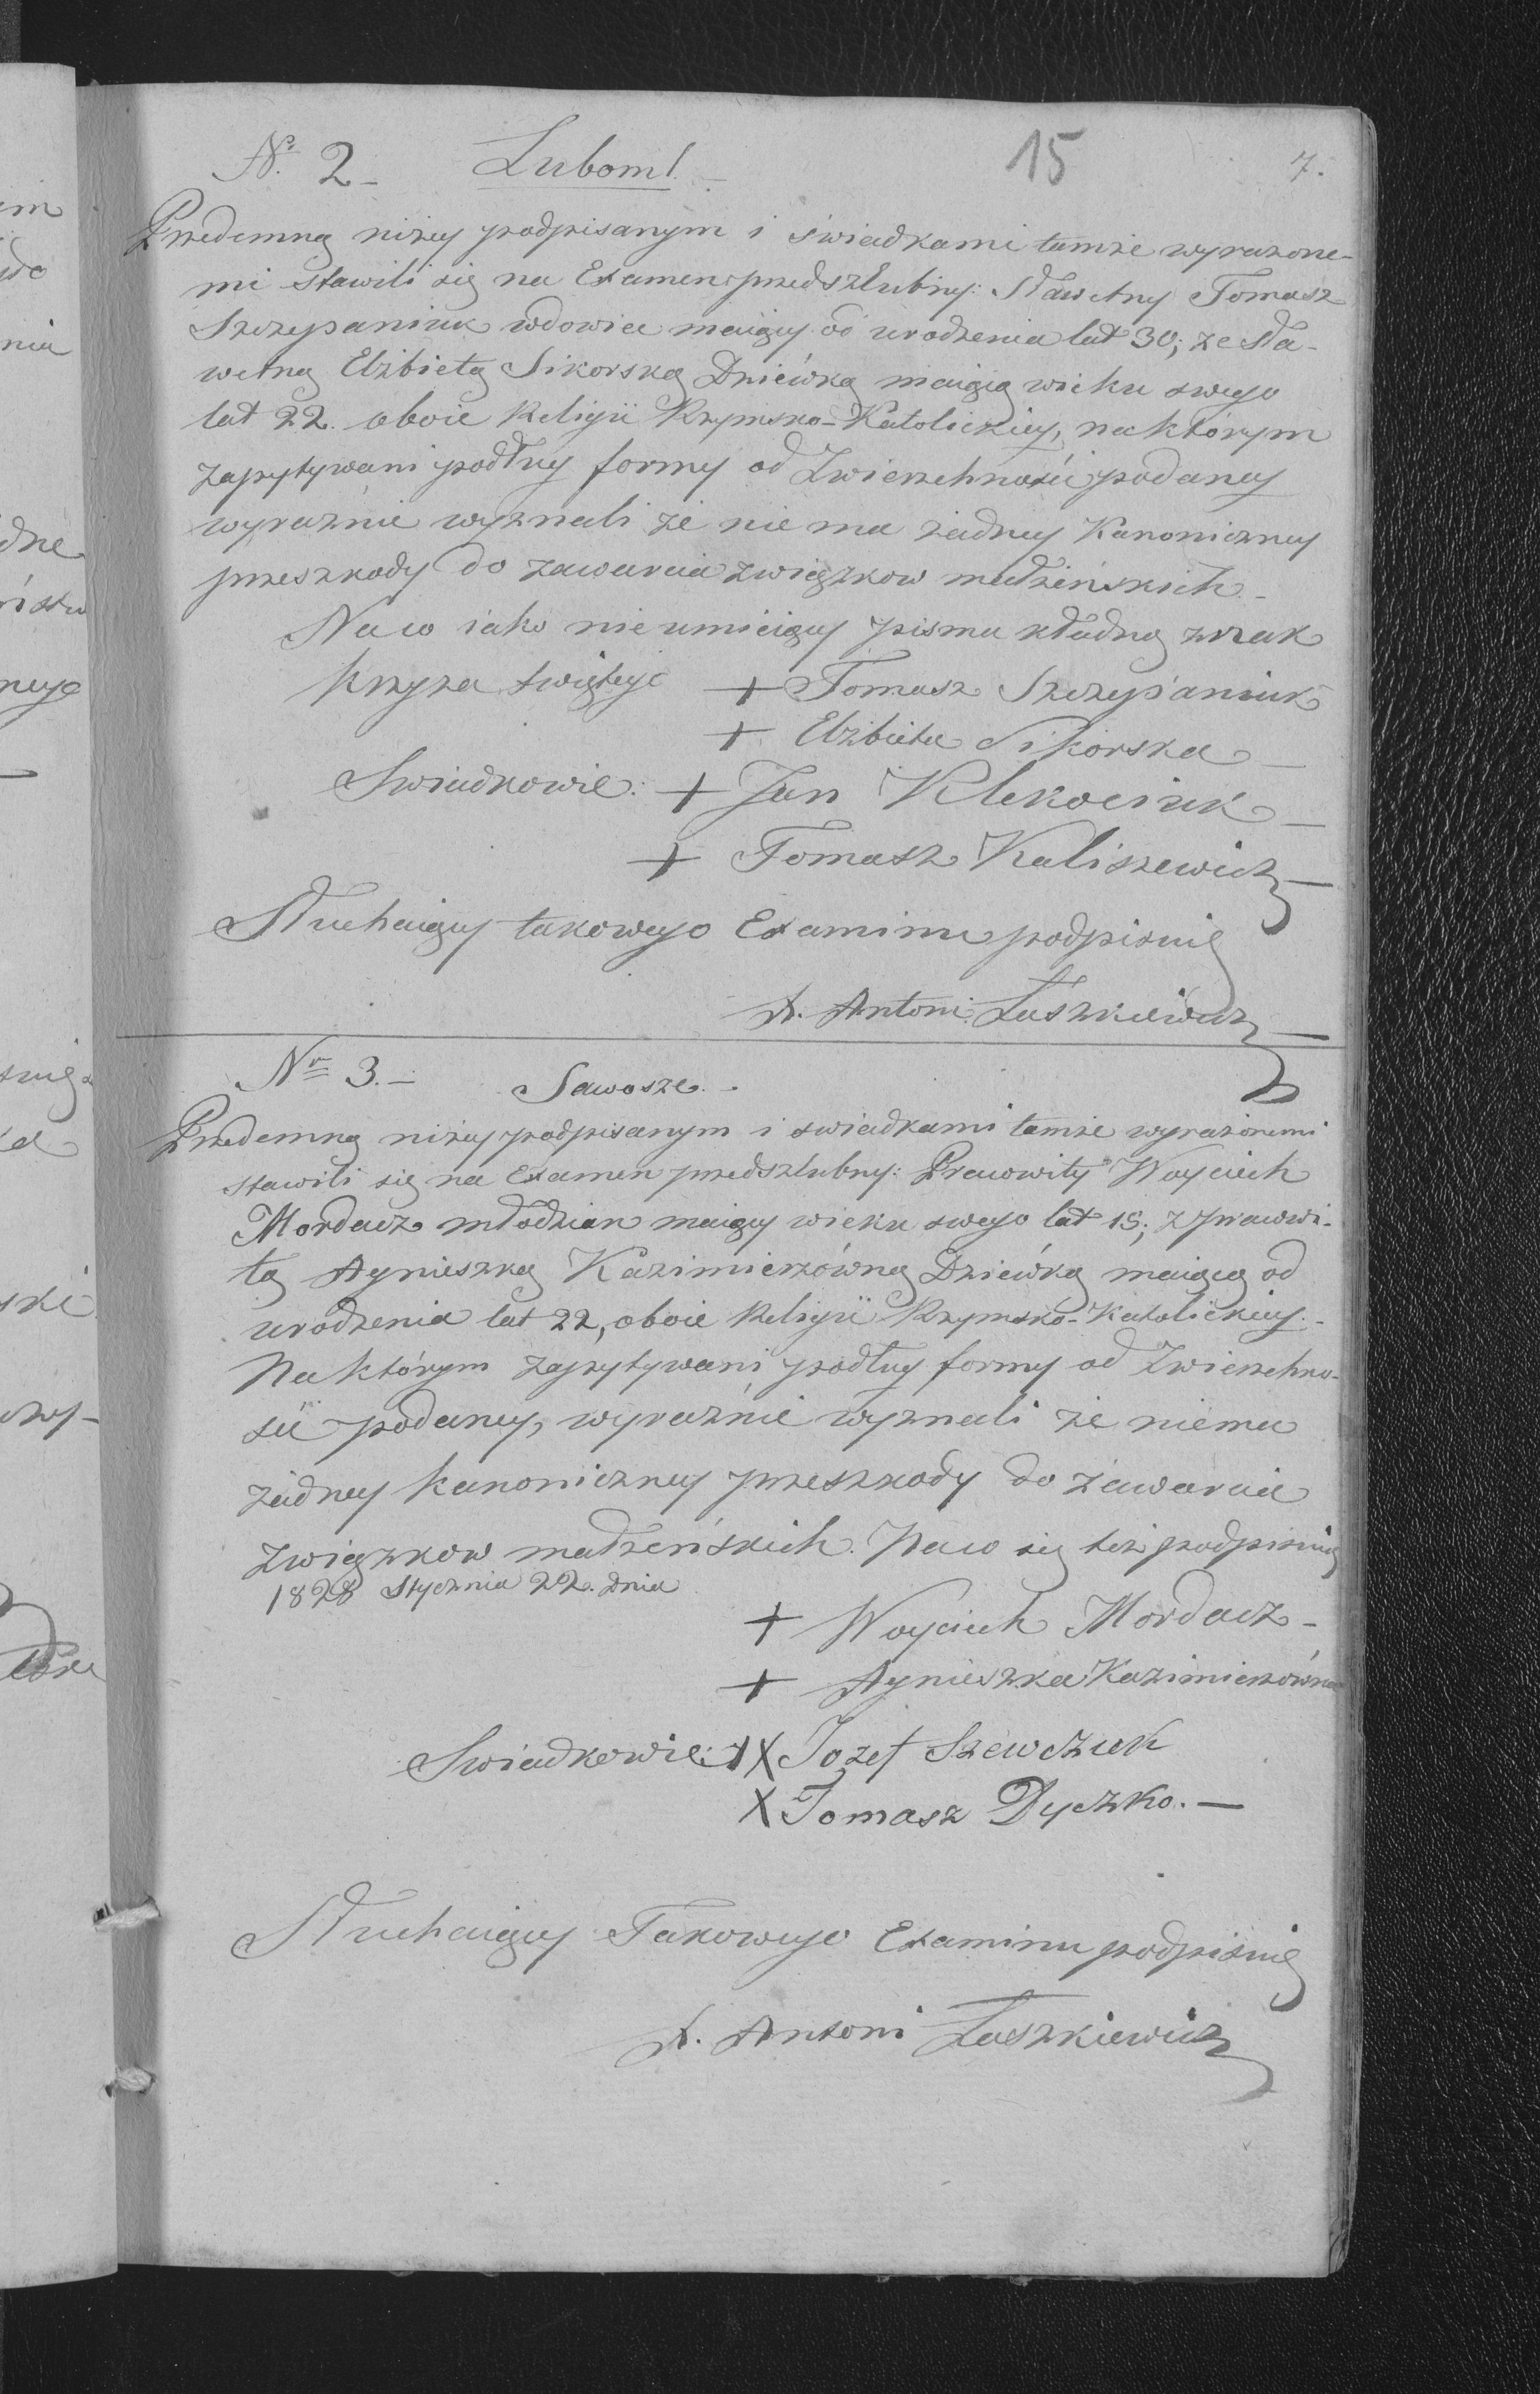 Nº 2 - Luboml. - 15 7.
Przedemną niżey podpisanym i świadkami tamże wyrażone-
mi stawili się na Examen przedszlubny: Sławetny Tomasz
Szczypaniuk wdowiec maiący od urodzenia lat 30; ze Sła-
wetną Elżbietą Sikorską Dniewką maiącą wieku swego
lat 22. oboie Religii Rzymsko-Katolickiey, na którym
zapytywani podług formy od Zwierzchności podaney
wyraźnie wyznali że nie ma żadney Kanoniczney
przeszkody do zawarcia związkow małżeńskich. -
Na co iako nieumieiący pisma kładną znak
krzyża świętego + Tomasz Szczypaniuk
+ Elżbieta Sikorska -
Swiadkowie: + Jan Klekociuk -
+ Tomasz Kaliszewicz -
Słuchaiący takowego Examinu podpisuię
X. Antoni Łaszkiewicz -
Nr 3. - Sawosze. -
Przedemną niżey podpisanym i swiadkami tamże wyrażonemi
stawili się na Examen przedszlubny: Pracowity Woyciech
Mordacz młodzian maiący wieku swego lat 18; z Pracowi-
tą Agnieszką Kazimierzówną Dziewką maiącą od
urodzenia lat 22, oboie Religii Rzymsko-Katolickiey. -
Na którym zapytywani podług formy od Zwierzchno-
sci podaney, wyraźnie wyznali że niema
żadney kanoniczney przeszkody do zawarcia
związkow małżeńskich. Na co się też podpisuią
1828 Stycznia 22. dnia
+ Woyciech Mordacz -
+ Agnieszka Kazimierzówna
Swiadkowie: + X Jozef Szewczuk
X Tomasz Dyczko. -
Słuchaiący Takowego Examinu podpisuię
X. Antoni Łaszkiewicz